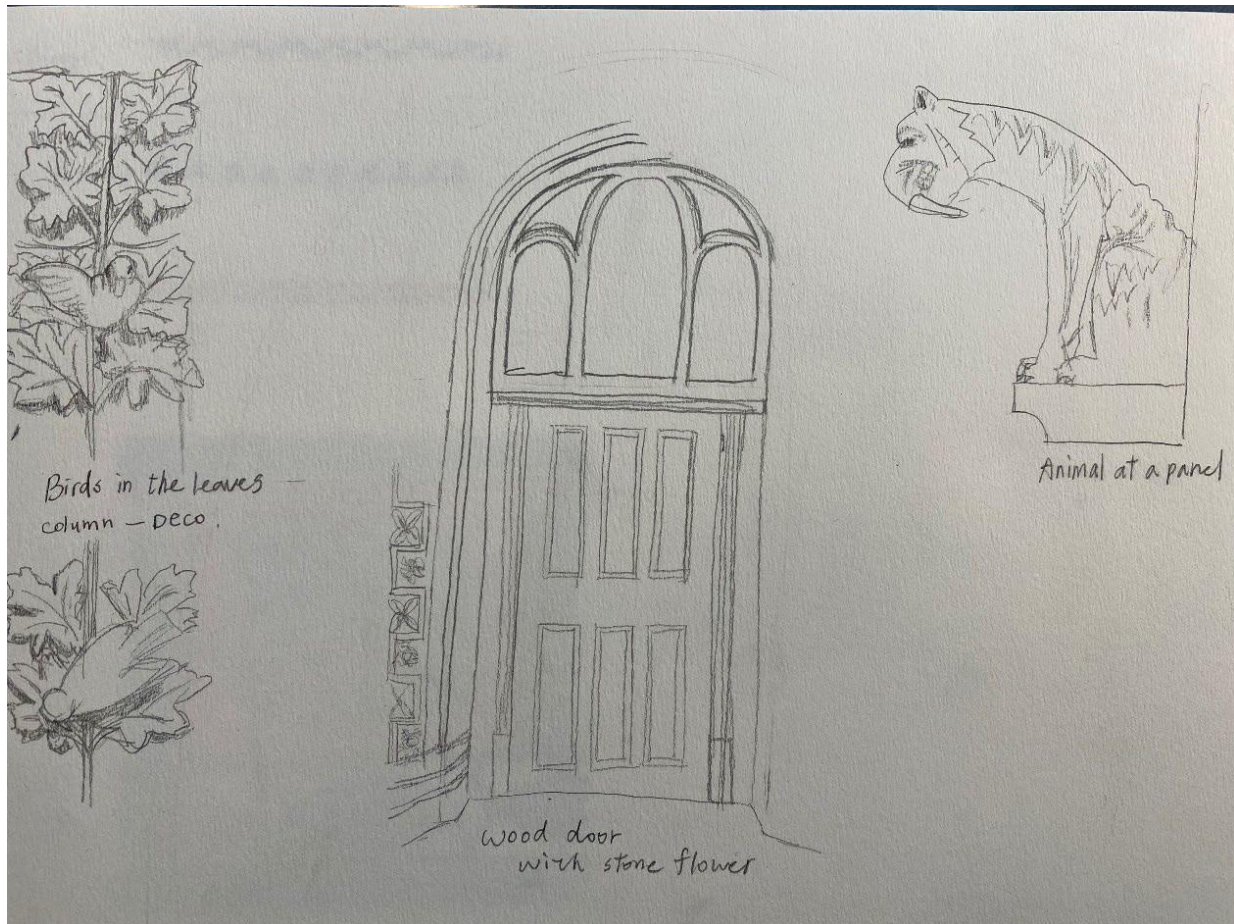 Birds in the leaves –
column – Deco.
wood door
with stone flower
Animal at a panel